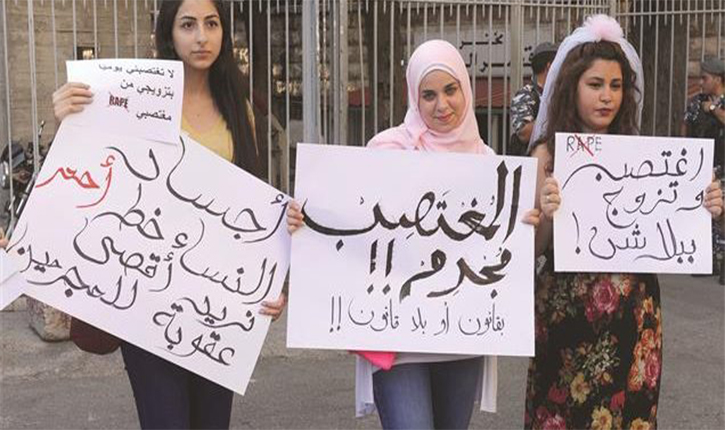 لا تغتصبني يوميا
بتزويجي من
RAPE
مغتصبي
أجساد
النساء خط أحمر
نريد أقصى
عقوبة للمجرمين
المغتصب
مجرم !!
بقانون أو بلا قانون !!
RAPE
اغتصب
وتزوج
ببلاش !